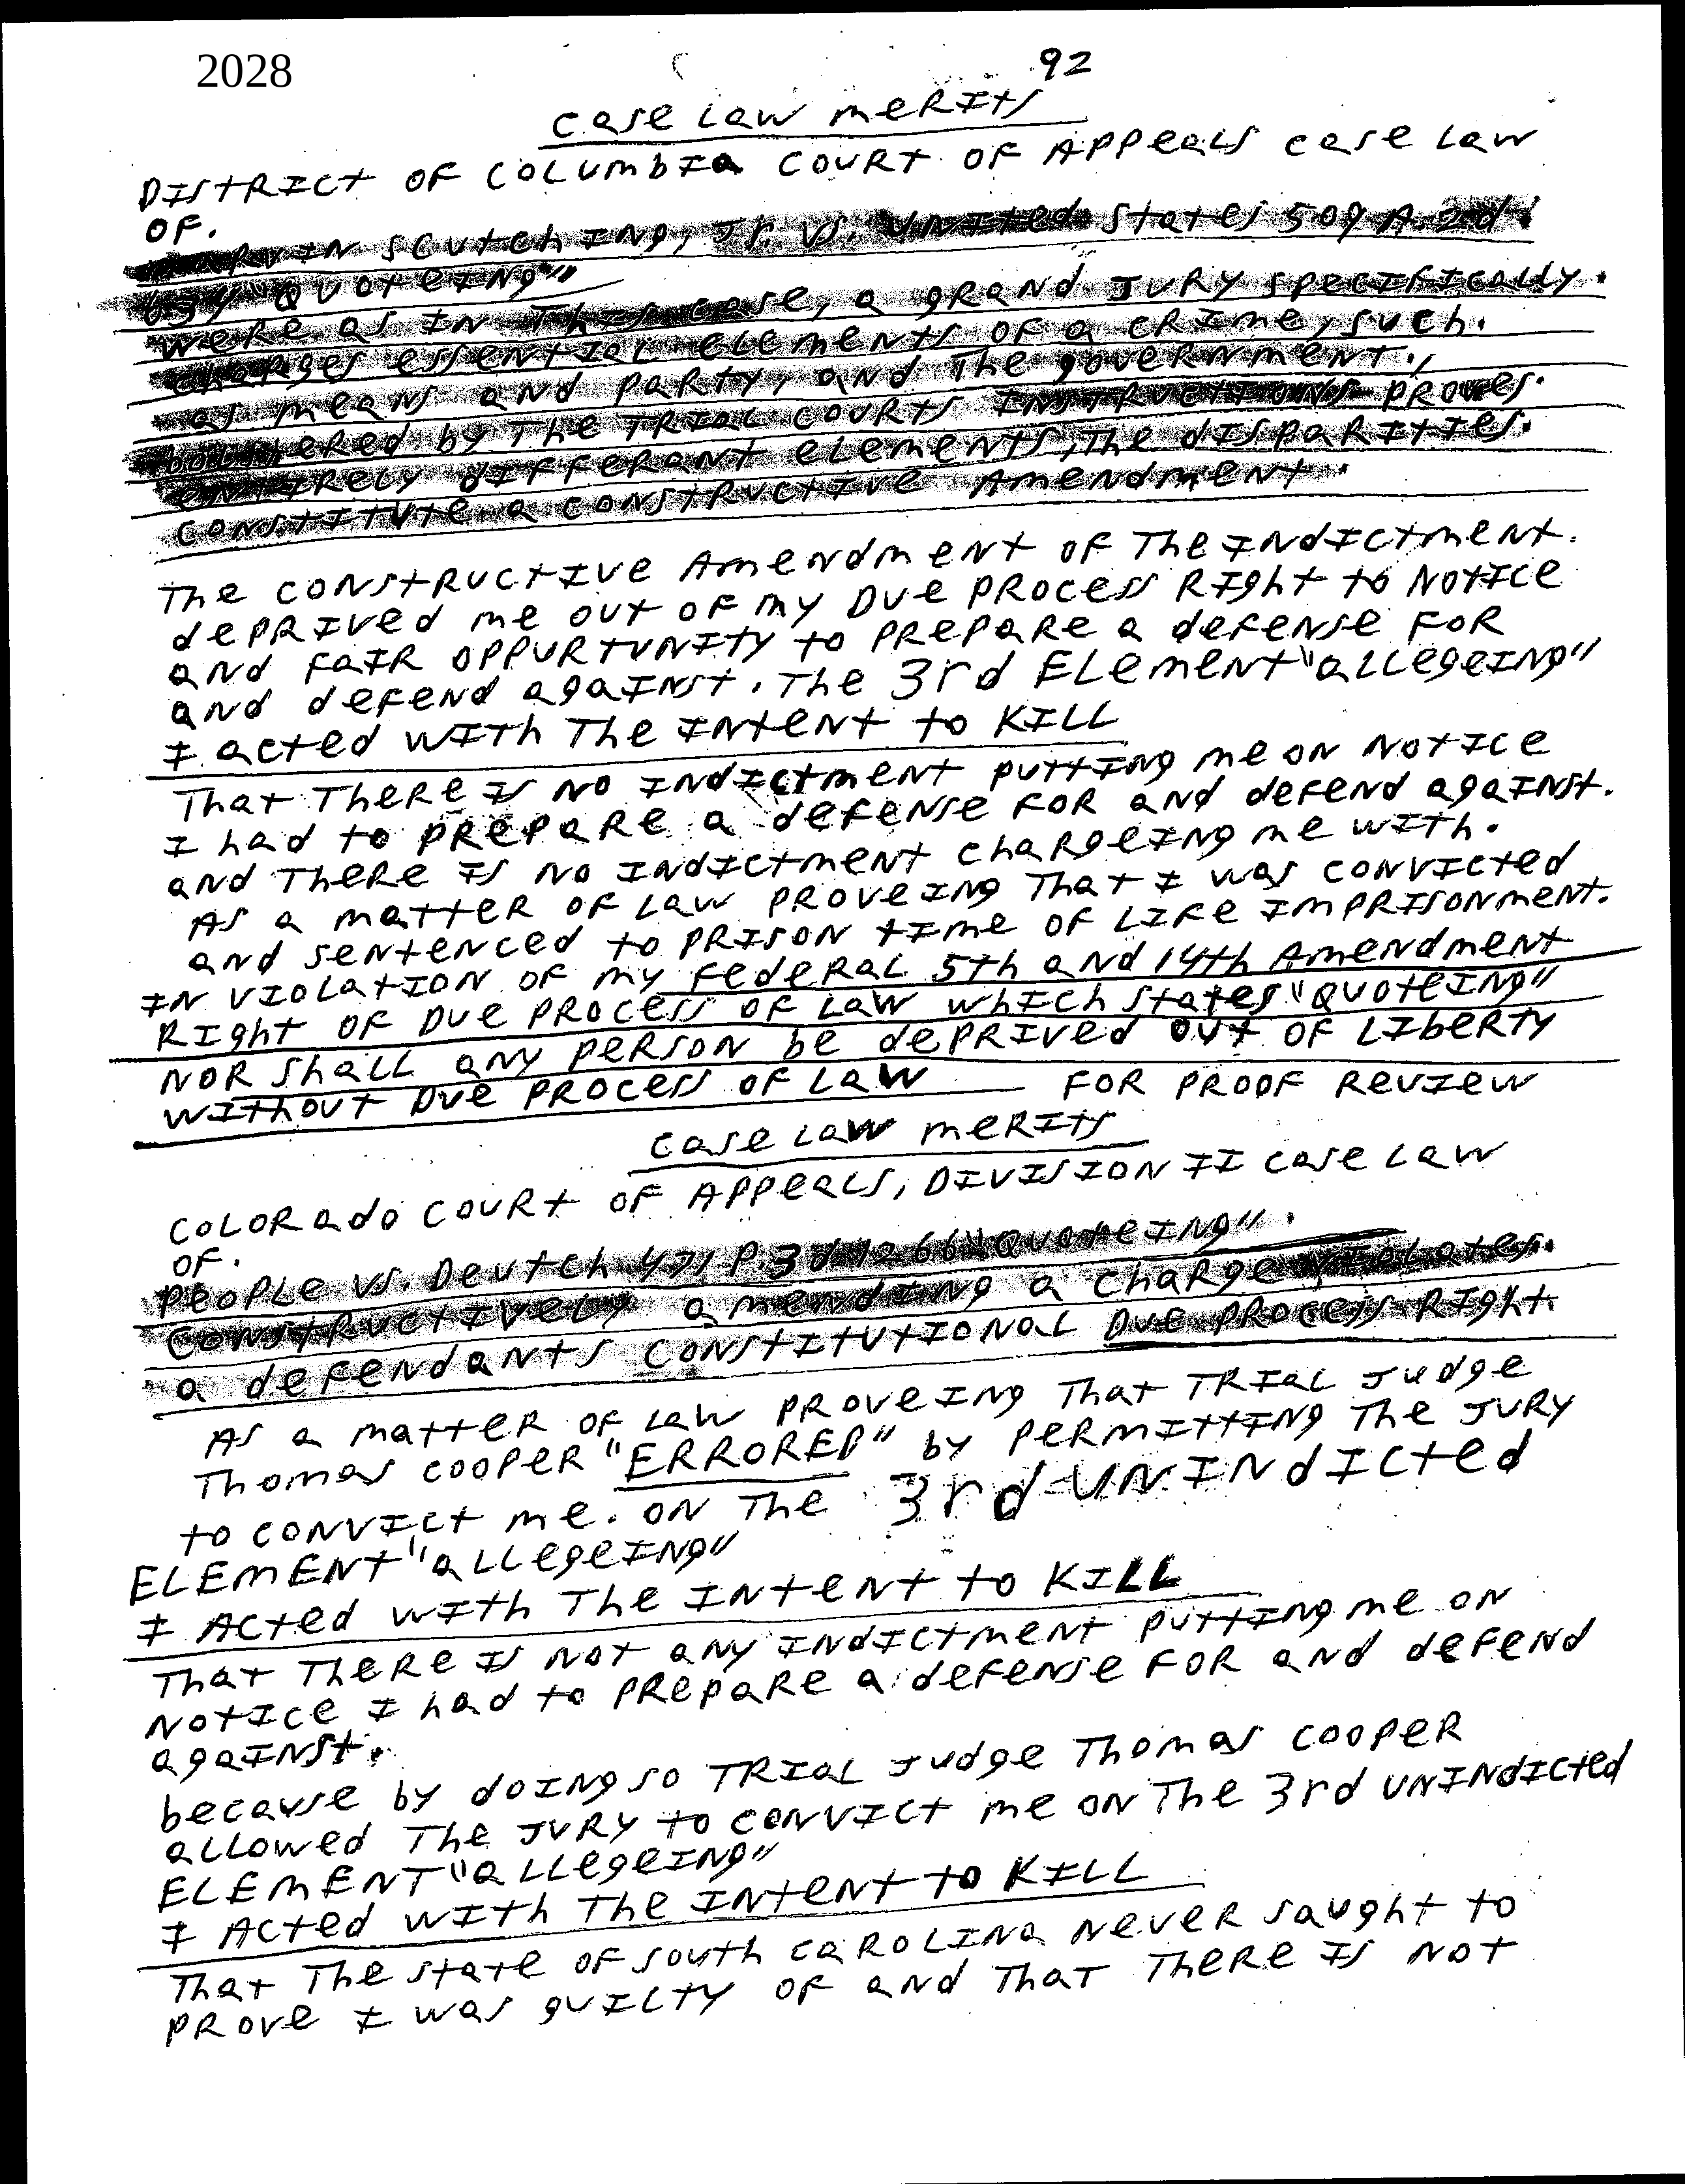 2028
92
case Law merits
District of Columbia Court of Appeals case Law
of.
Scutching, Jr. vs. United States 509 A.2d.
634 "Quoteing"
were as in this case, a grand Jury specifically.
charges essential elements of a crime, such.
as means and party, and the government.,
by the trial courts instructions proves.
entirely differant elements, the disparities.
constitute a constructive Amendment.
The constructive Amendment of the indictment.
deprived me out of my Due process Right to Notice
and fair oppurtunity to prepare a defense for
and defend against. The 3rd Element "allegeing"
I acted with the intent to Kill
That there is no indictment putting me on notice
I had to prepare a defense for and defend against.
and there is no indictment chargeing me with.
As a matter of law proveing that I was convicted
and sentenced to prison time of life imprisonment.
in violation of my federal 5th and 14th Amendment
Right of Due process of law which states "Quoteing"
Nor shall any person be deprived out of liberty
without Due process of law for proof review
case law merits
Colorado Court of Appeals, Division II case law
of.
People vs. Deutch 471 P.3d 1266 "Quoteing".
constructively amending a charge violates.
a defendants constitutional Due process Right
As a matter of law proveing that trial Judge
Thomas Cooper "ERRORED" by permitting the Jury
to convict me. on the 3rd unindicted
Element "allegeing"
I Acted with the intent to Kill
That there is not any indictment putting me on
notice I had to prepare a defense for and defend
against.
because by doing so trial Judge Thomas Cooper
allowed the Jury to convict me on the 3rd unindicted
Element "allegeing"
I Acted with the intent to Kill
That the state of South Carolina never saught to
prove I was guilty of and that there is not